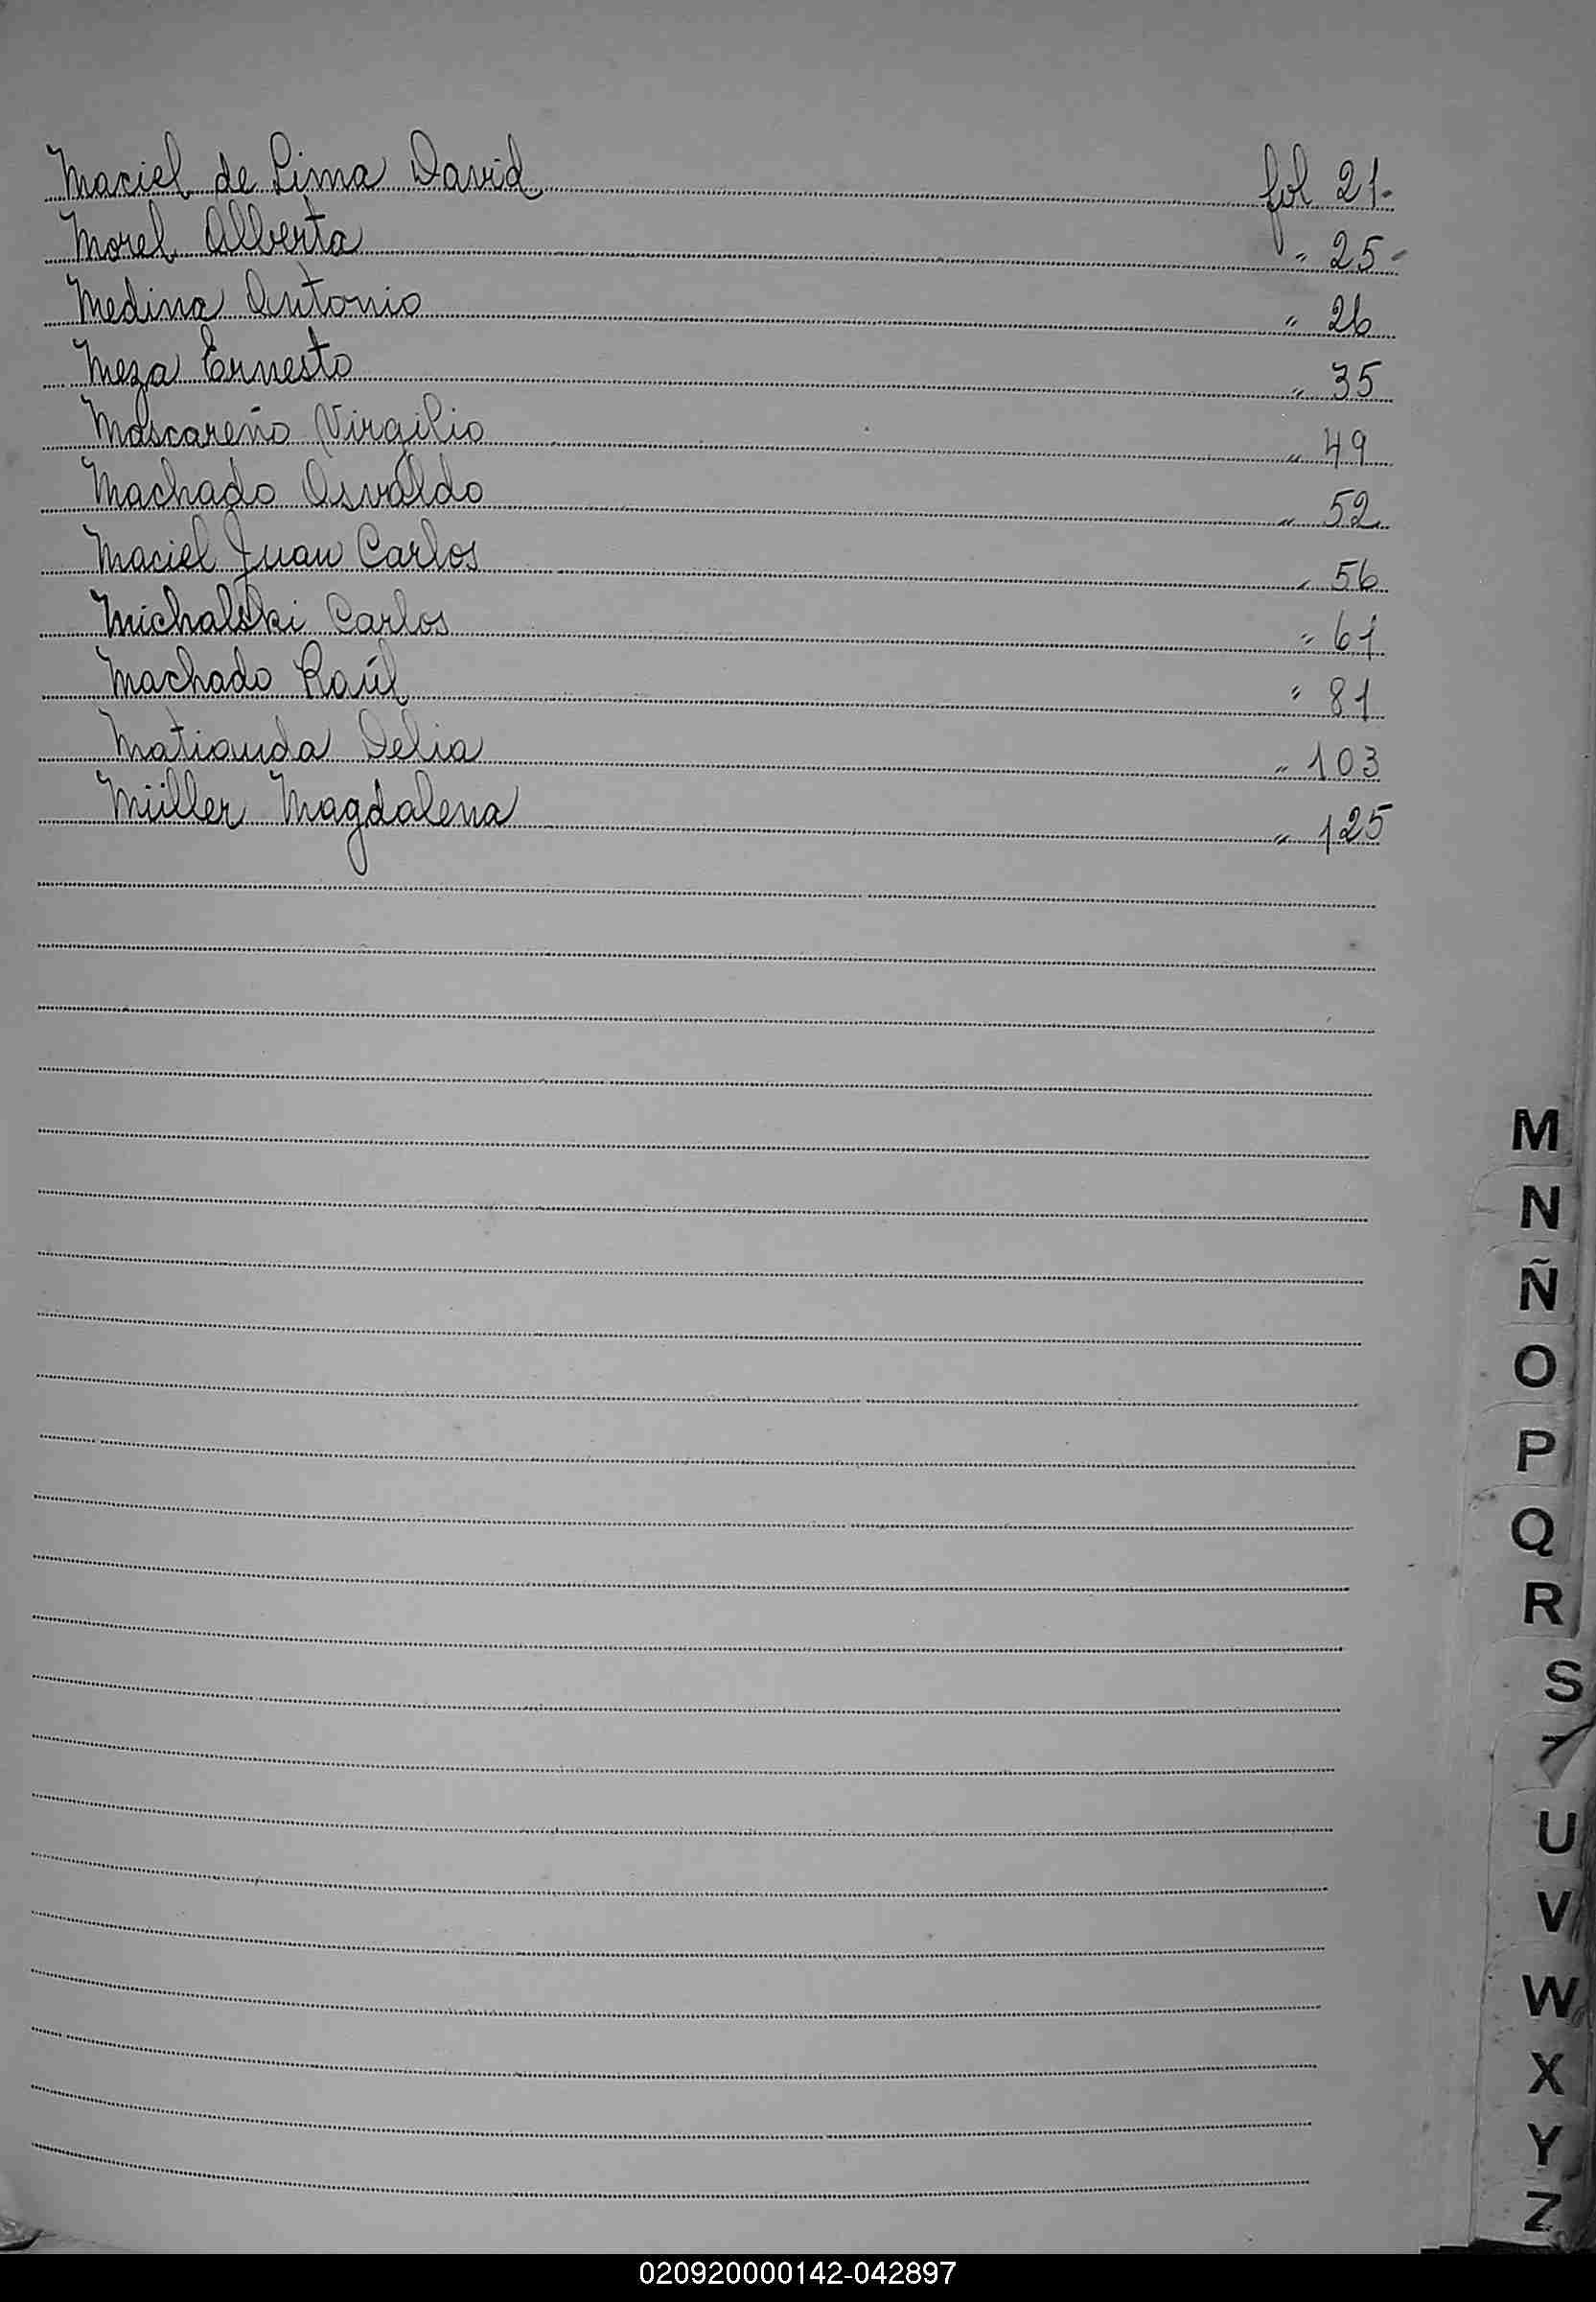 Maciel de Lima David fol 21.
Morel Alberta " 25-
Medina Antonio " 26
Meza Ernesto " 35
Mascareño Virgilio " 49
Machado Osvaldo " 52
Maciel Juan Carlos " 56
Michalski Carlos " 61
Machado Raúl " 81
Matiauda Delia " 103
Müller Magdalena " 125
M
N
Ñ
O
P
Q
R
S
T
U
V
W
X
Y
Z
020920000142-042897